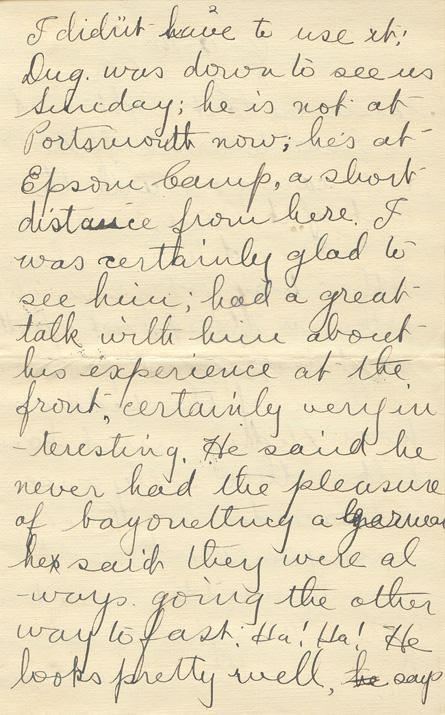 2
I didn't have to use it!
Dug. was down to see us
Sunday; he is not at
Portsmouth now; he's at
Epsom Camp, a short
distance from here. I
was certainly glad to
see him; had a great
talk with him about
his experience at the
front, certainly very in
-teresting. He said he
never had the pleasure
of bayonetting a German
he said they were al
-ways going the other
way to fast. Ha! Ha! He
looks pretty well, he says